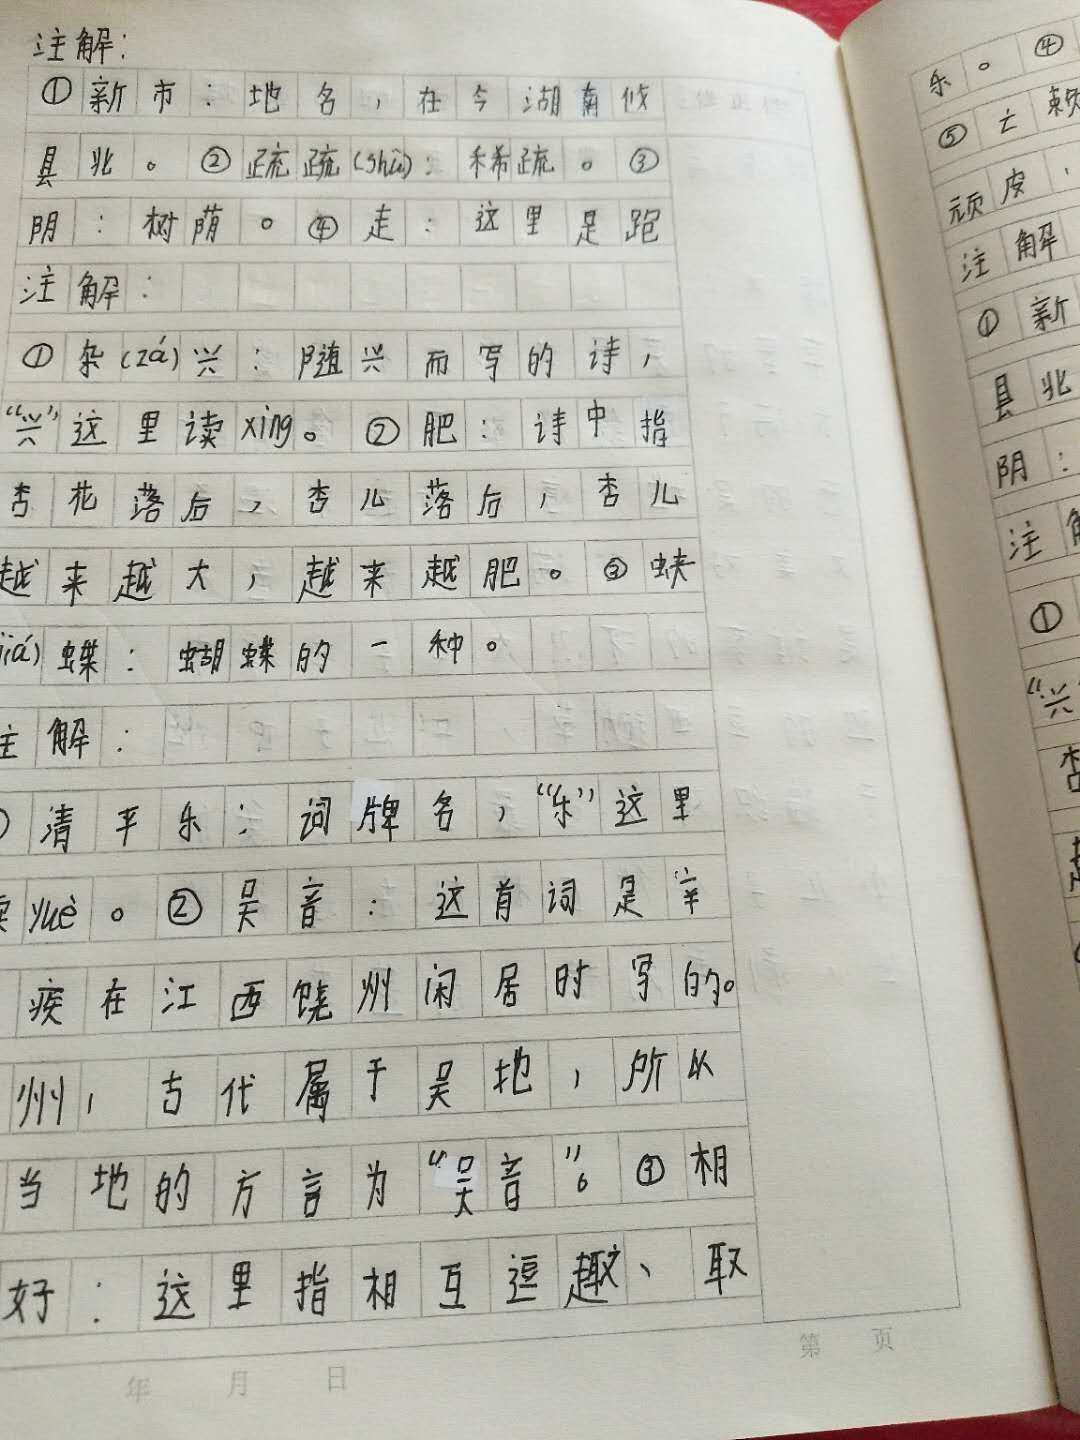 注解：
①新市：地名，在今湖南攸
县北。②疏疏(shū)：稀疏。③
阴：树荫。④走：这里是跑
注解：
①杂(zá)兴：随兴而写的诗，
“兴”这里读xìng。②肥：诗中指
杏花落后，杏儿落后，杏儿
越来越大，越来越肥。③蛱
(jiá)蝶：蝴蝶的一种。
注解：
清平乐：词牌名，“乐”这里
读yuè。②吴音：这首词是辛
疾在江西饶州闲居时写的。
州，古代属于吴地，所以
当地的方言为“吴音”。③相
好：这里指相互逗趣、取
年 月 日
第 页
乐。④
⑤亡赖
顽皮，
注解
①新
县北
阴：
注解
①
“兴”
杏
越